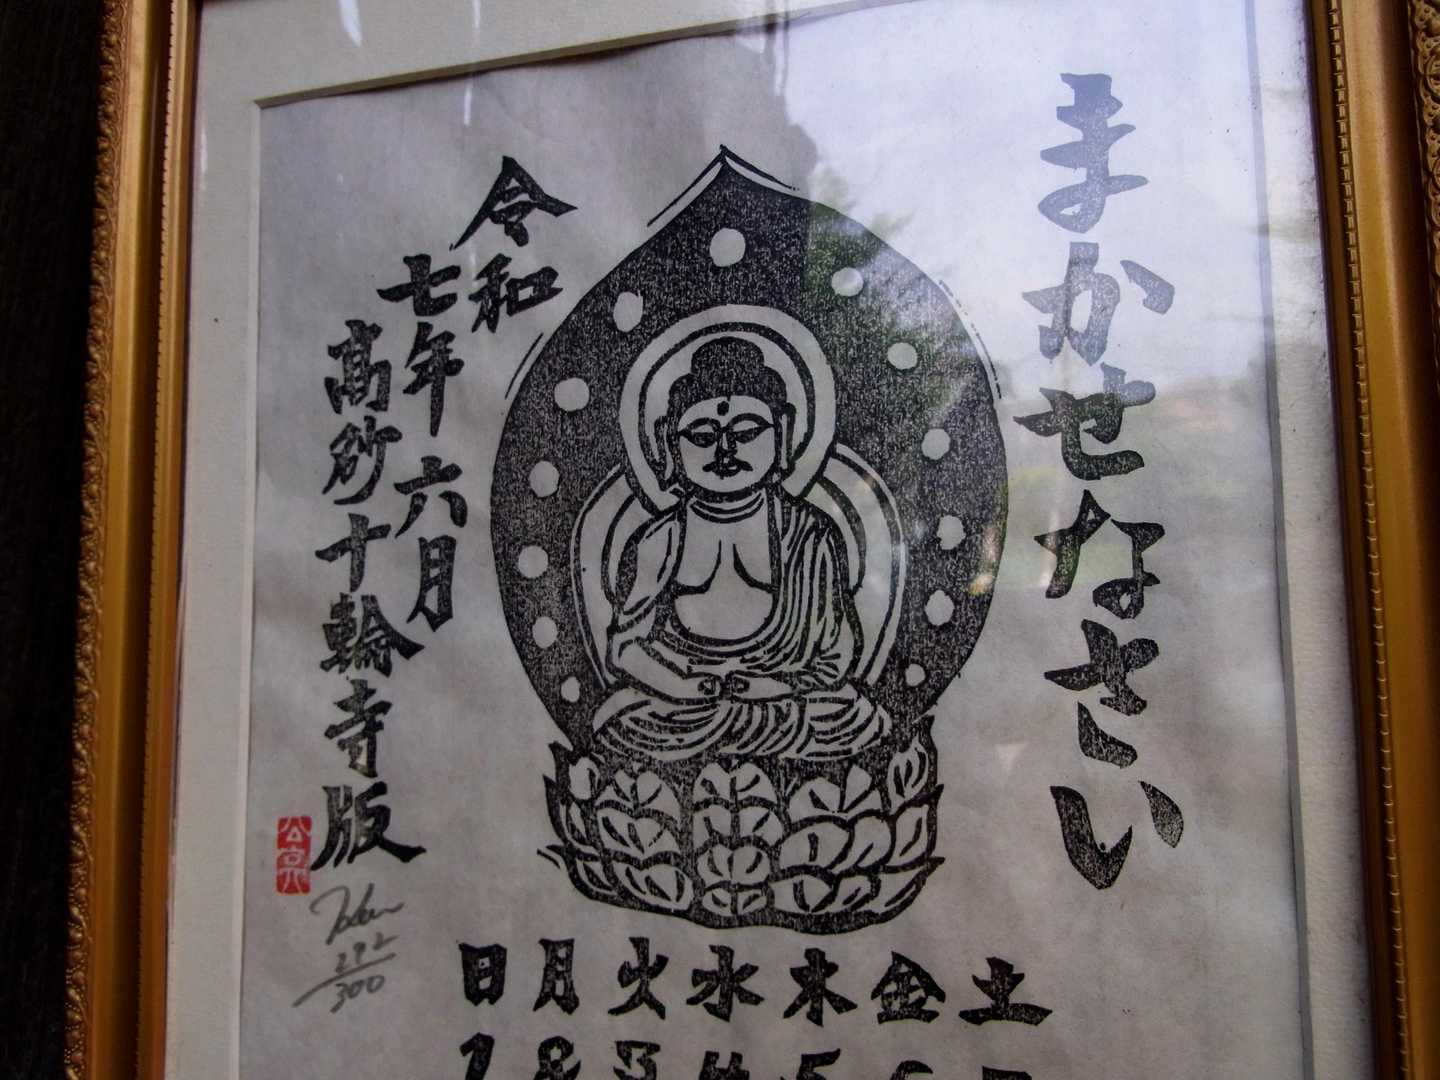 まかせなさい
令和
七年六月
高砂十輪寺版
292/300
日月火水木金土
1 2 3 4 5 6 7